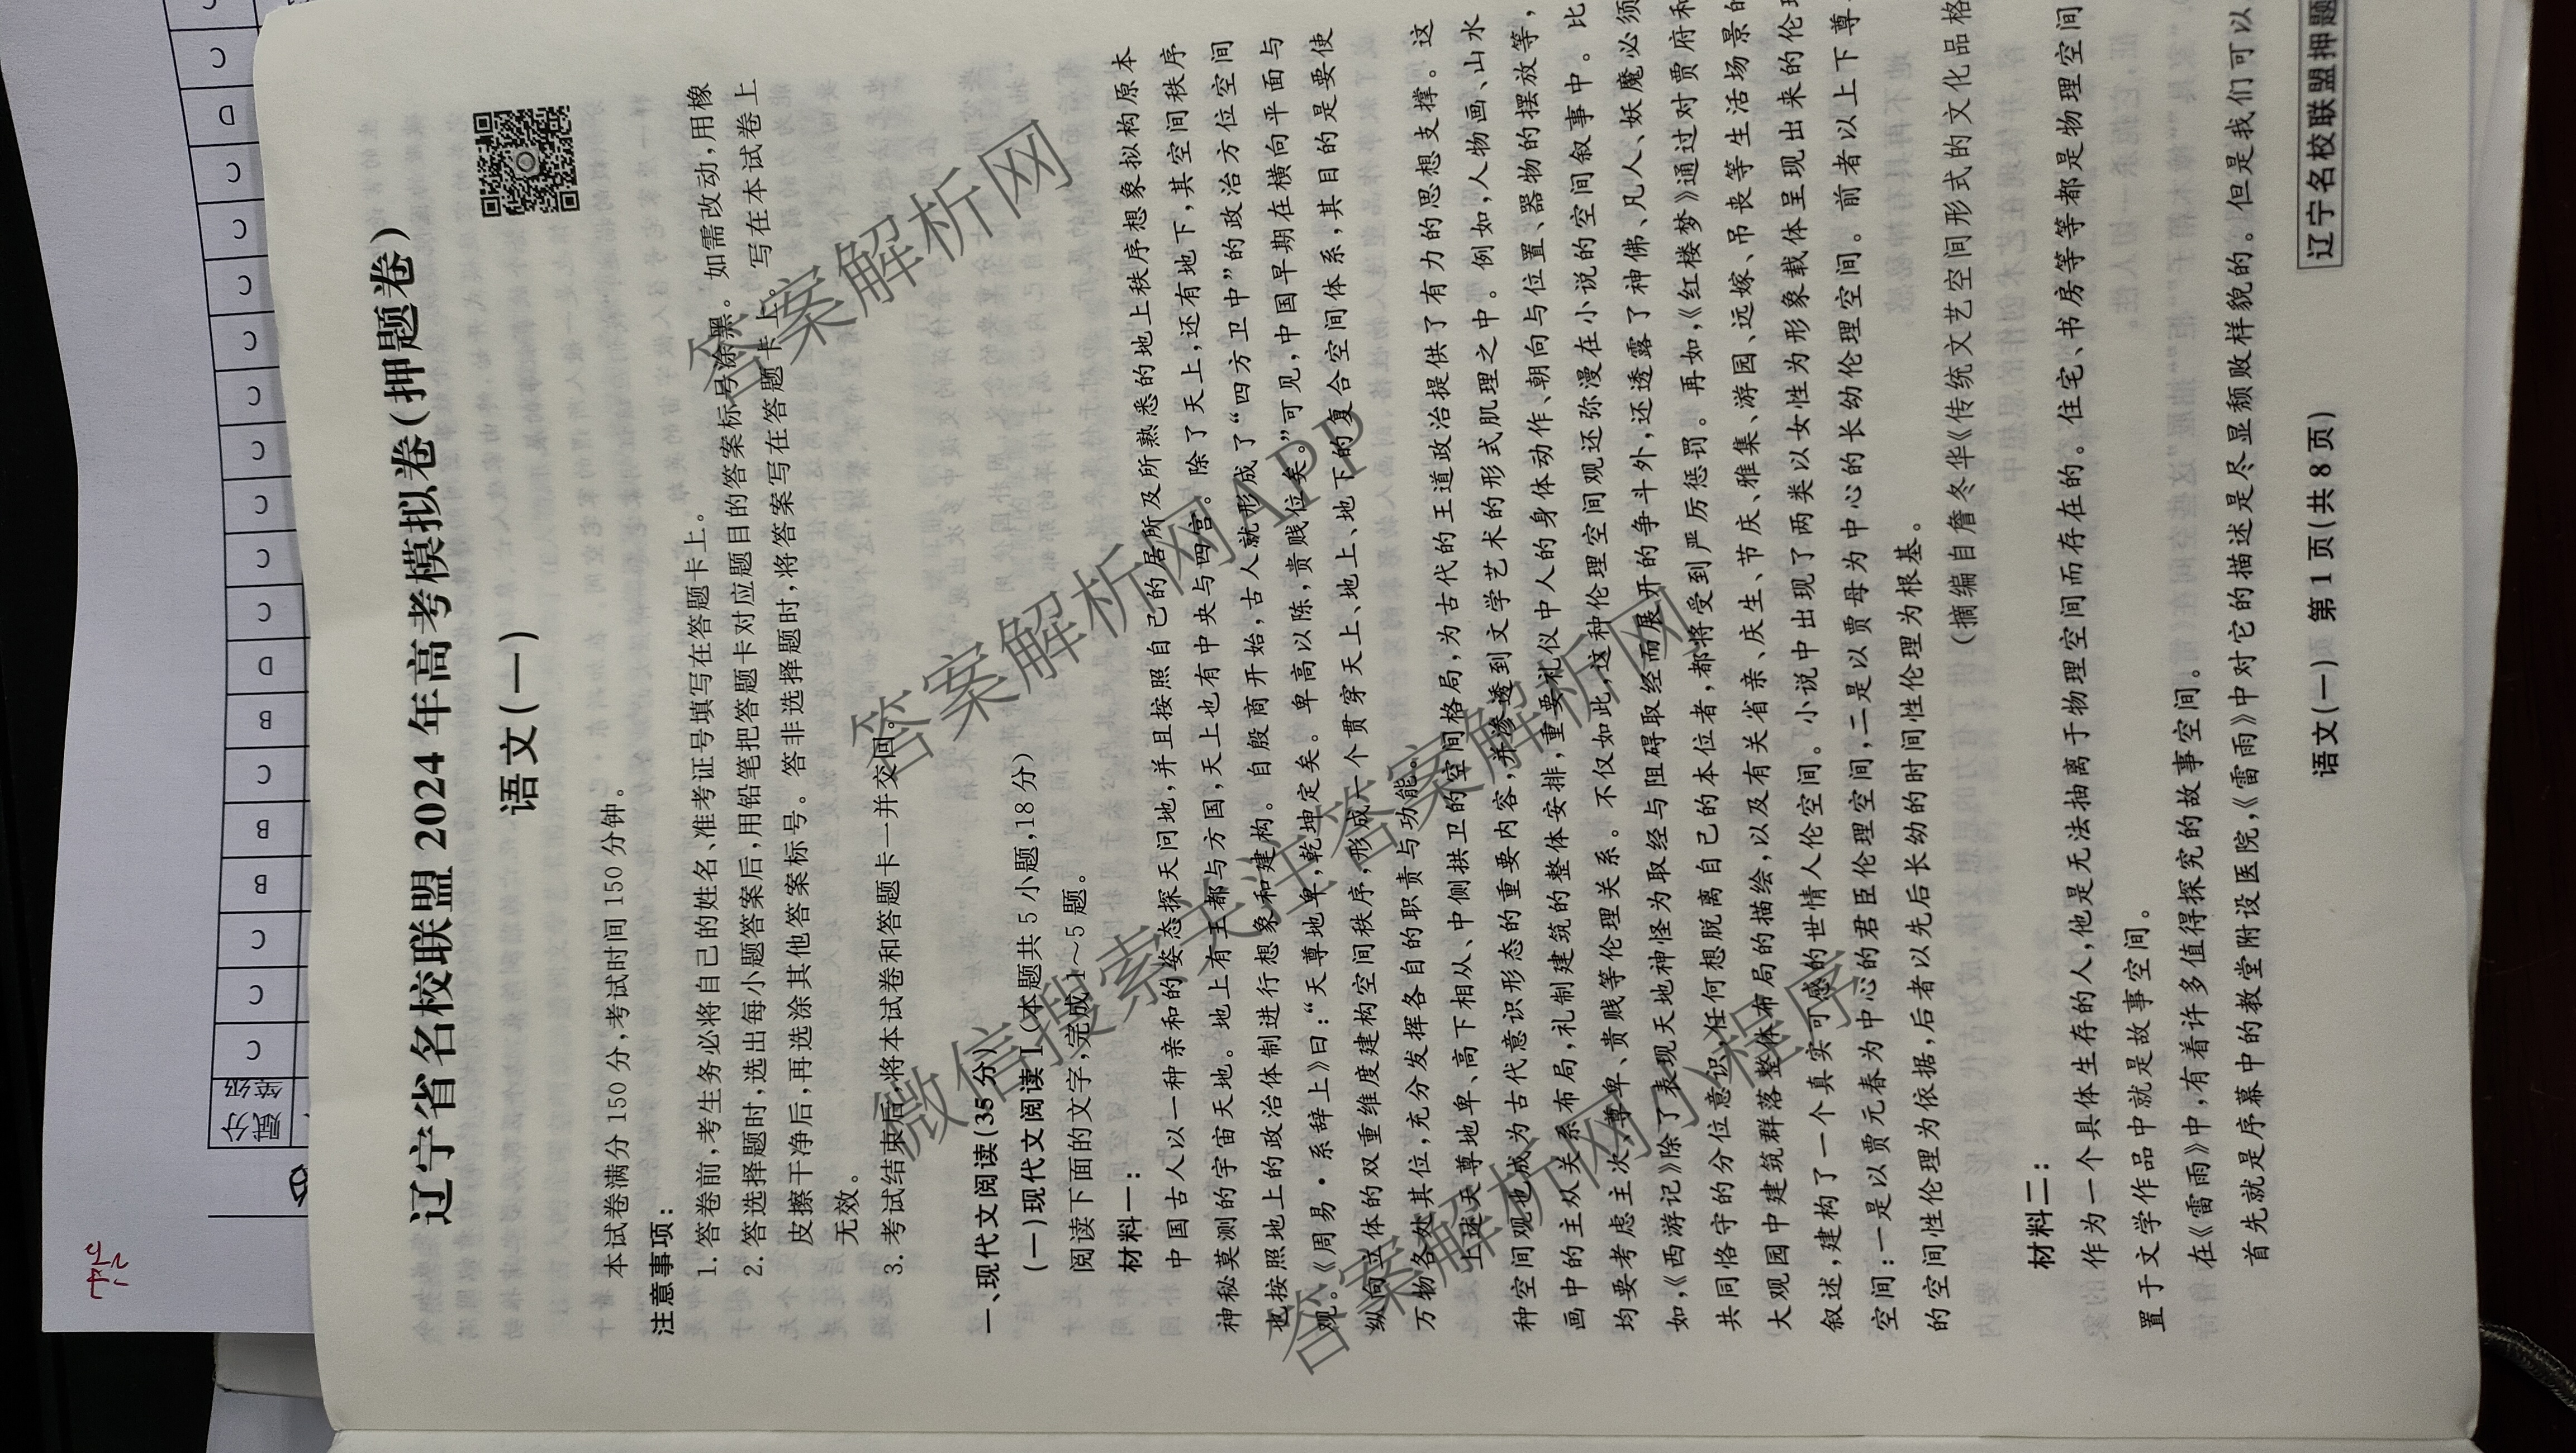 辽宁省名校联盟2024年高考模拟卷(押题卷)
语文(一)
本试卷满分150分,考试时间150分钟。
注意事项:
1.答卷前,考生务必将自己的姓名、准考证号填写在答题卡上。
2.答选择题时,选出每小题答案后,用铅笔把答题卡对应题目的答案标号涂黑。如需改动,用橡
皮擦干净后,再选涂其他答案标号。答非选择题时,将答案写在答题卡上。写在本试卷上
无效。
3.考试结束后,将本试卷和答题卡一并交回。
一、现代文阅读(35分)
(一)现代文阅读Ⅰ(本题共5小题,18分)
阅读下面的文字,完成1~5题。
材料一:
中国古人以一种亲和的姿态探天问地,并且按照自己的居所及所熟悉的地上秩序想象拟构原本
神秘莫测的宇宙天地。地上有王都与方国,天上也有中央与四宫。除了天上,还有地下,其空间秩序
也按照地上的政治体制进行想象和建构。自殷商开始,古人就形成了“四方卫中”的政治方位空间
观。《周易·系辞上》曰:“天尊地卑,乾坤定矣。卑高以陈,贵贱位矣。”可见,中国早期在横向平面与
纵向立体的双重维度建构空间秩序,形成一个贯穿天上、地上、地下的复合空间体系,其目的是要使
万物各处其位,充分发挥各自的职责与功能。
上述天尊地卑、高下相从、中侧拱卫的空间格局,为古代的王道政治提供了有力的思想支撑。这
种空间观也成为古代意识形态的重要内容,并渗透到文学艺术的形式肌理之中。例如,人物画、山水
画中的主从关系布局,礼制建筑的整体安排,重要礼仪中人的身体动作、朝向与位置、器物的摆放等,
均要考虑主次、尊卑、贵贱等伦理关系。不仅如此,这种伦理空间观还弥漫在小说的空间叙事中。比
如,《西游记》除了表现天地神怪为取经与阻碍取经而展开的争斗外,还透露了神佛、凡人、妖魔必须
共同恪守的分位意识,任何想脱离自己的本位者,都将受到严厉惩罚。再如,《红楼梦》通过对贾府和
大观园中建筑群落整体布局的描绘,以及有关省亲、庆生、节庆、雅集、游园、远嫁、吊丧等生活场景的
叙述,建构了一个真实可感的世情人伦空间。小说中出现了两类以女性为形象载体呈现出来的伦理
空间:一是以贾元春为中心的君臣伦理空间,二是以贾母为中心的长幼伦理空间。前者以上下尊
的空间性伦理为依据,后者以先后长幼的时间性伦理为根基。
(摘编自詹冬华《传统文艺空间形式的文化品格
材料二:
作为一个具体生存的人,他是无法抽离于物理空间而存在的。住宅、书房等等都是物理空间
置于文学作品中就是故事空间。
在《雷雨》中,有着许多值得探究的故事空间。
首先就是序幕中的教堂附设医院,《雷雨》中对它的描述是尽显颓败样貌的。但是我们可以
语文(一) 第1页(共8页)
辽宁名校联盟押题
答案解析网
答案解析网APP
微信搜索关注答案解析网
答案解析网小程序